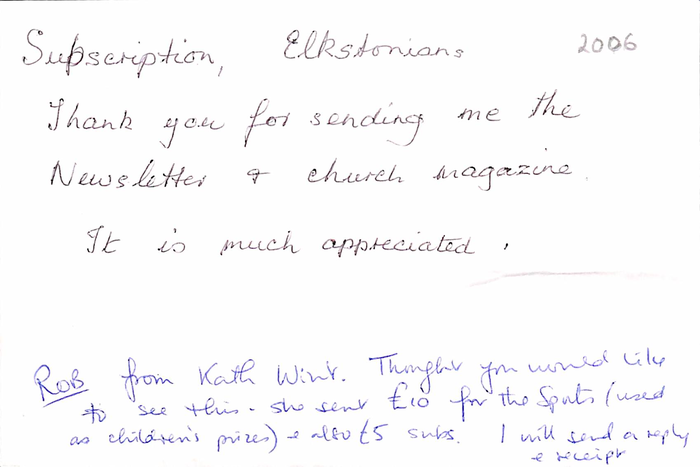 Subscription, Elkstonians 2006
Thank you for sending me the
Newsletter & church magazine.
It is much appreciated.
ROB from Kath Wint. Thought you would like
to see this - she sent £10 for the Sports (used
as children's prizes) & also £5 subs. I will send a reply
& receipt